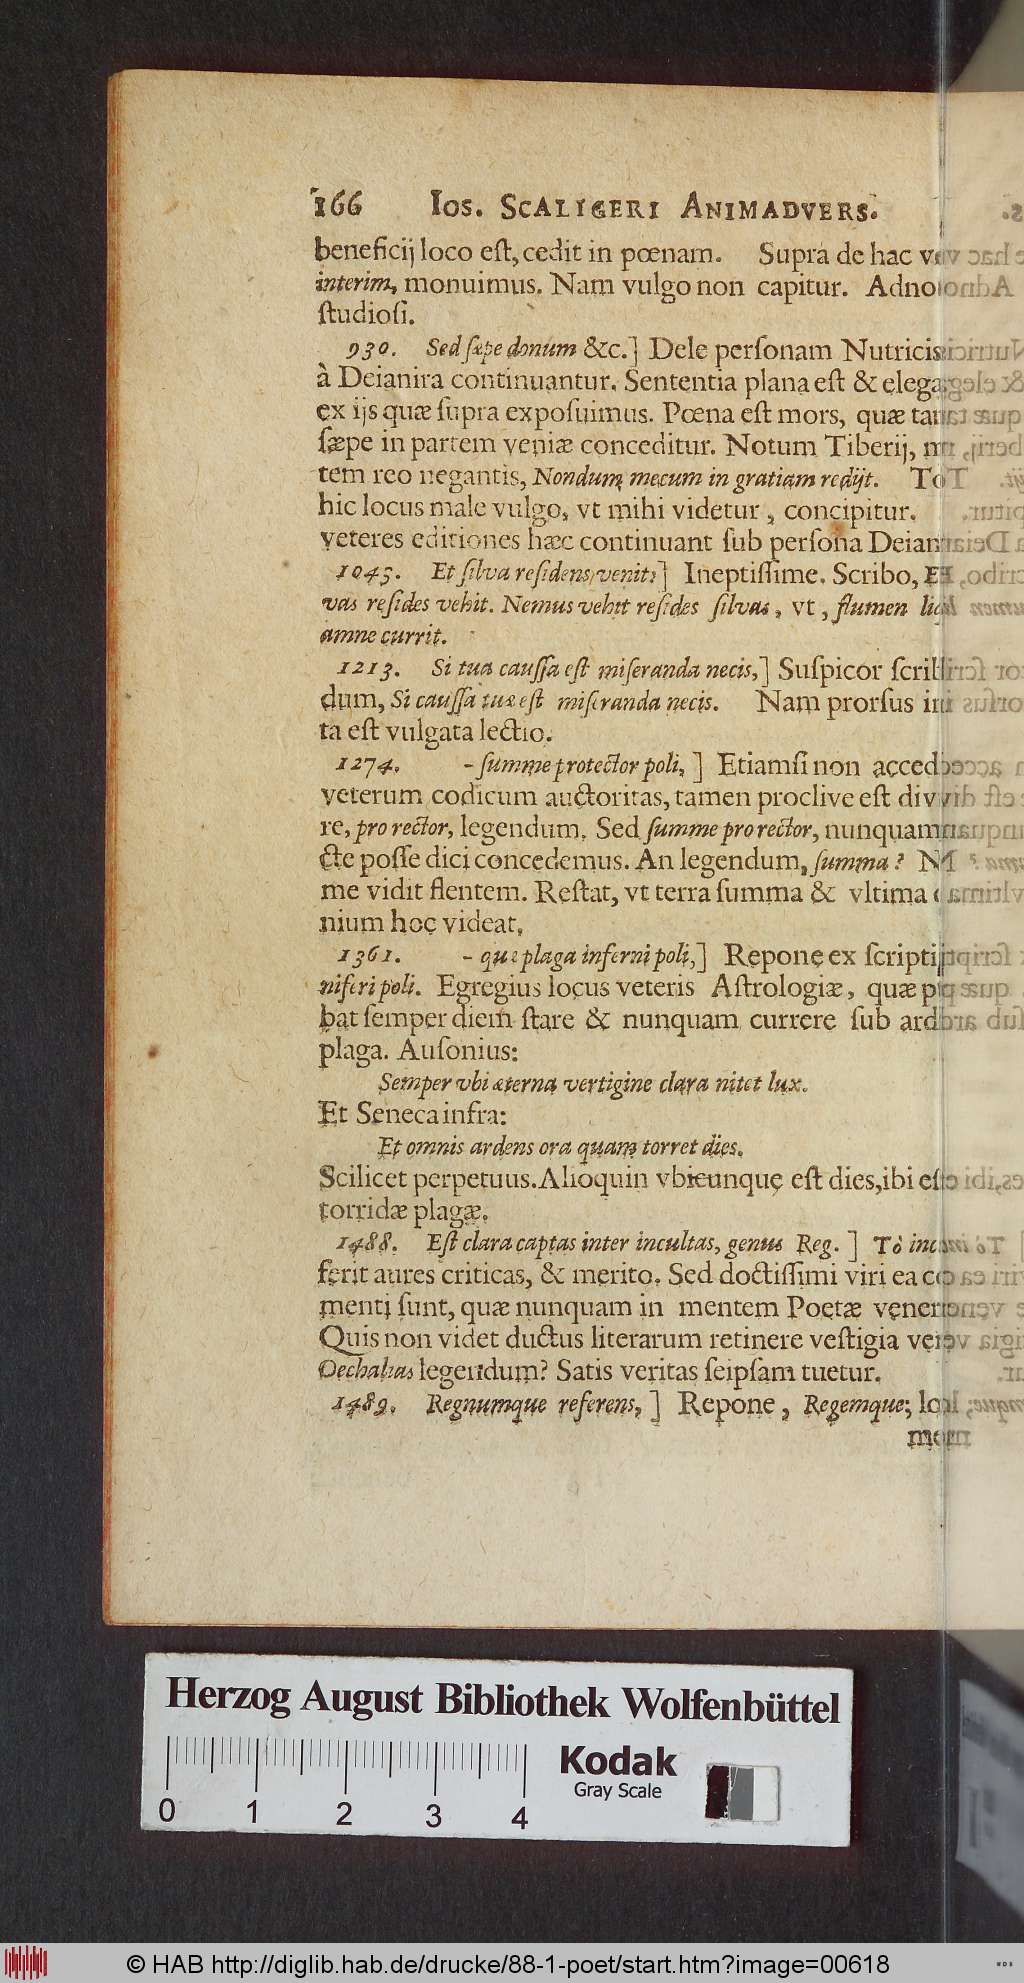 166 Ios. Scaligeri Animadvers.
beneficij loco eſt, cedit in pœnam. Supra de hac
interim, monuimus. Nam vulgo non capitur. Adno
ſtudioſi.
930. Sed ſæpe donum &c.] Dele perſonam Nutricis
à Deianira continuantur. Sententia plana eſt & elega
ex ijs quæ ſupra expoſuimus. Pœna eſt mors, quæ
ſæpe in partem veniæ conceditur. Notum Tiberij,
tem reo negantis, Nondum mecum in gratiam redijt. To
hic locus male vulgo, vt mihi videtur, concipitur.
veteres editiones hæc continuant ſub perſona Deian
1043. Et ſilva reſidens, venit:] Ineptiſſime. Scribo, Et
vas reſides vehit. Nemus vehit reſides ſilvas, vt, flumen
amne currit.
1213. Si tua cauſſa eſt miſeranda necis,] Suſpicor ſcrib
dum, Si cauſſa tuæ eſt miſeranda necis. Nam prorſus
ta eſt vulgata lectio.
1274. - ſumme protector poli,] Etiamſi non acced
veterum codicum auctoritas, tamen proclive eſt
re, pro rector, legendum. Sed ſumme pro rector, nunquam
cte poſſe dici concedemus. An legendum, ſumma?
me vidit flentem. Reſtat, vt terra ſumma & vltima
nium hoc videat.
1361. - quæ plaga inferni poli,] Repone ex ſcripti
niferi poli. Egregius locus veteris Aſtrologiæ, quæ
bat ſemper diem ſtare & nunquam currere ſub ard
plaga. Auſonius:
Semper vbi æterna vertigine clara nitet lux.
Et Seneca infra:
Et omnis ardens ora quam torret dies.
Scilicet perpetuus. Alioquin vbicunque eſt dies, ibi
torridæ plagæ.
1488. Eſt clara captas inter incultas, genus Reg.] Tò
ferit aures criticas, & merito. Sed doctiſſimi viri ea
menti ſunt, quæ nunquam in mentem Poetæ vener
Quis non videt ductus literarum retinere veſtigia
Oechalias legendum? Satis veritas ſeipſam tuetur.
1489. Regnumque referens,] Repone, Regemque;
mom
Herzog August Bibliothek Wolfenbüttel
Kodak
Gray Scale
0 1 2 3 4
© HAB http://diglib.hab.de/drucke/88-1-poet/start.htm?image=00618